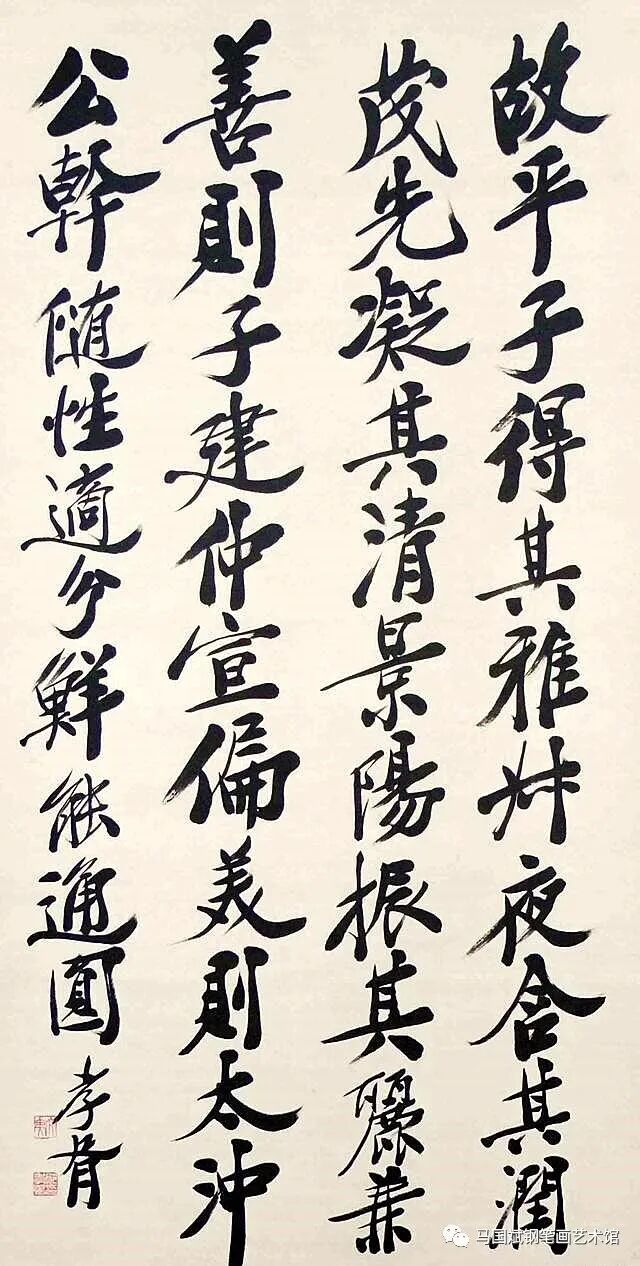 故平子得其雅叔夜含其潤
茂先凝其清景陽振其麗兼
善則子建仲宣偏美則太沖
公幹随性適分鮮能通圓
孝胥
马国斌钢笔画艺术馆